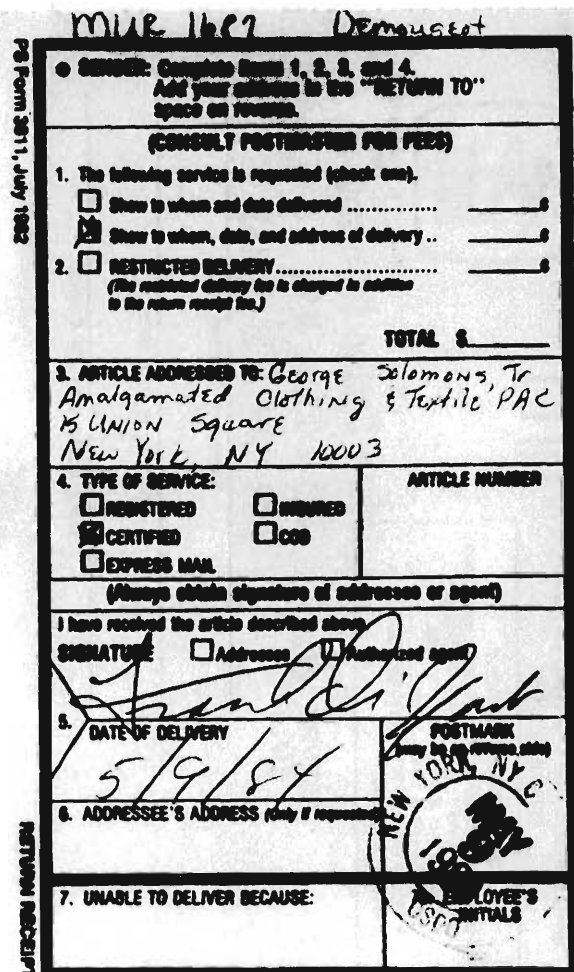 MUR 1687 Demougeot
PS Form 3811, July 1982
● SENDER: Complete items 1, 2, 3, and 4.
Add your address in the "RETURN TO"
space on reverse.
(CONSULT POSTMASTER FOR FEES)
1. The following service is requested (check one).
Show to whom and date delivered .................... ¢
Show to whom, date, and address of delivery .. ¢
2. RESTRICTED DELIVERY............................ ¢
(The restricted delivery fee is charged in addition
to the return receipt fee.)
TOTAL $
3. ARTICLE ADDRESSED TO: George Solomons, Tr
Amalgamated Clothing & Textile PAC
15 Union Square
New York, NY 10003
4. TYPE OF SERVICE: ARTICLE NUMBER
REGISTERED INSURED
CERTIFIED COD
EXPRESS MAIL
(Always obtain signature of addressee or agent)
I have received the article described above.
SIGNATURE Addressee Authorized agent
5. DATE OF DELIVERY POSTMARK
(may be on reverse side)
5/9/84
NEW YORK, NY
MAY
USPO
6. ADDRESSEE'S ADDRESS (Only if requested)
7. UNABLE TO DELIVER BECAUSE: EMPLOYEE'S
INITIALS
RETURN RECEIPT